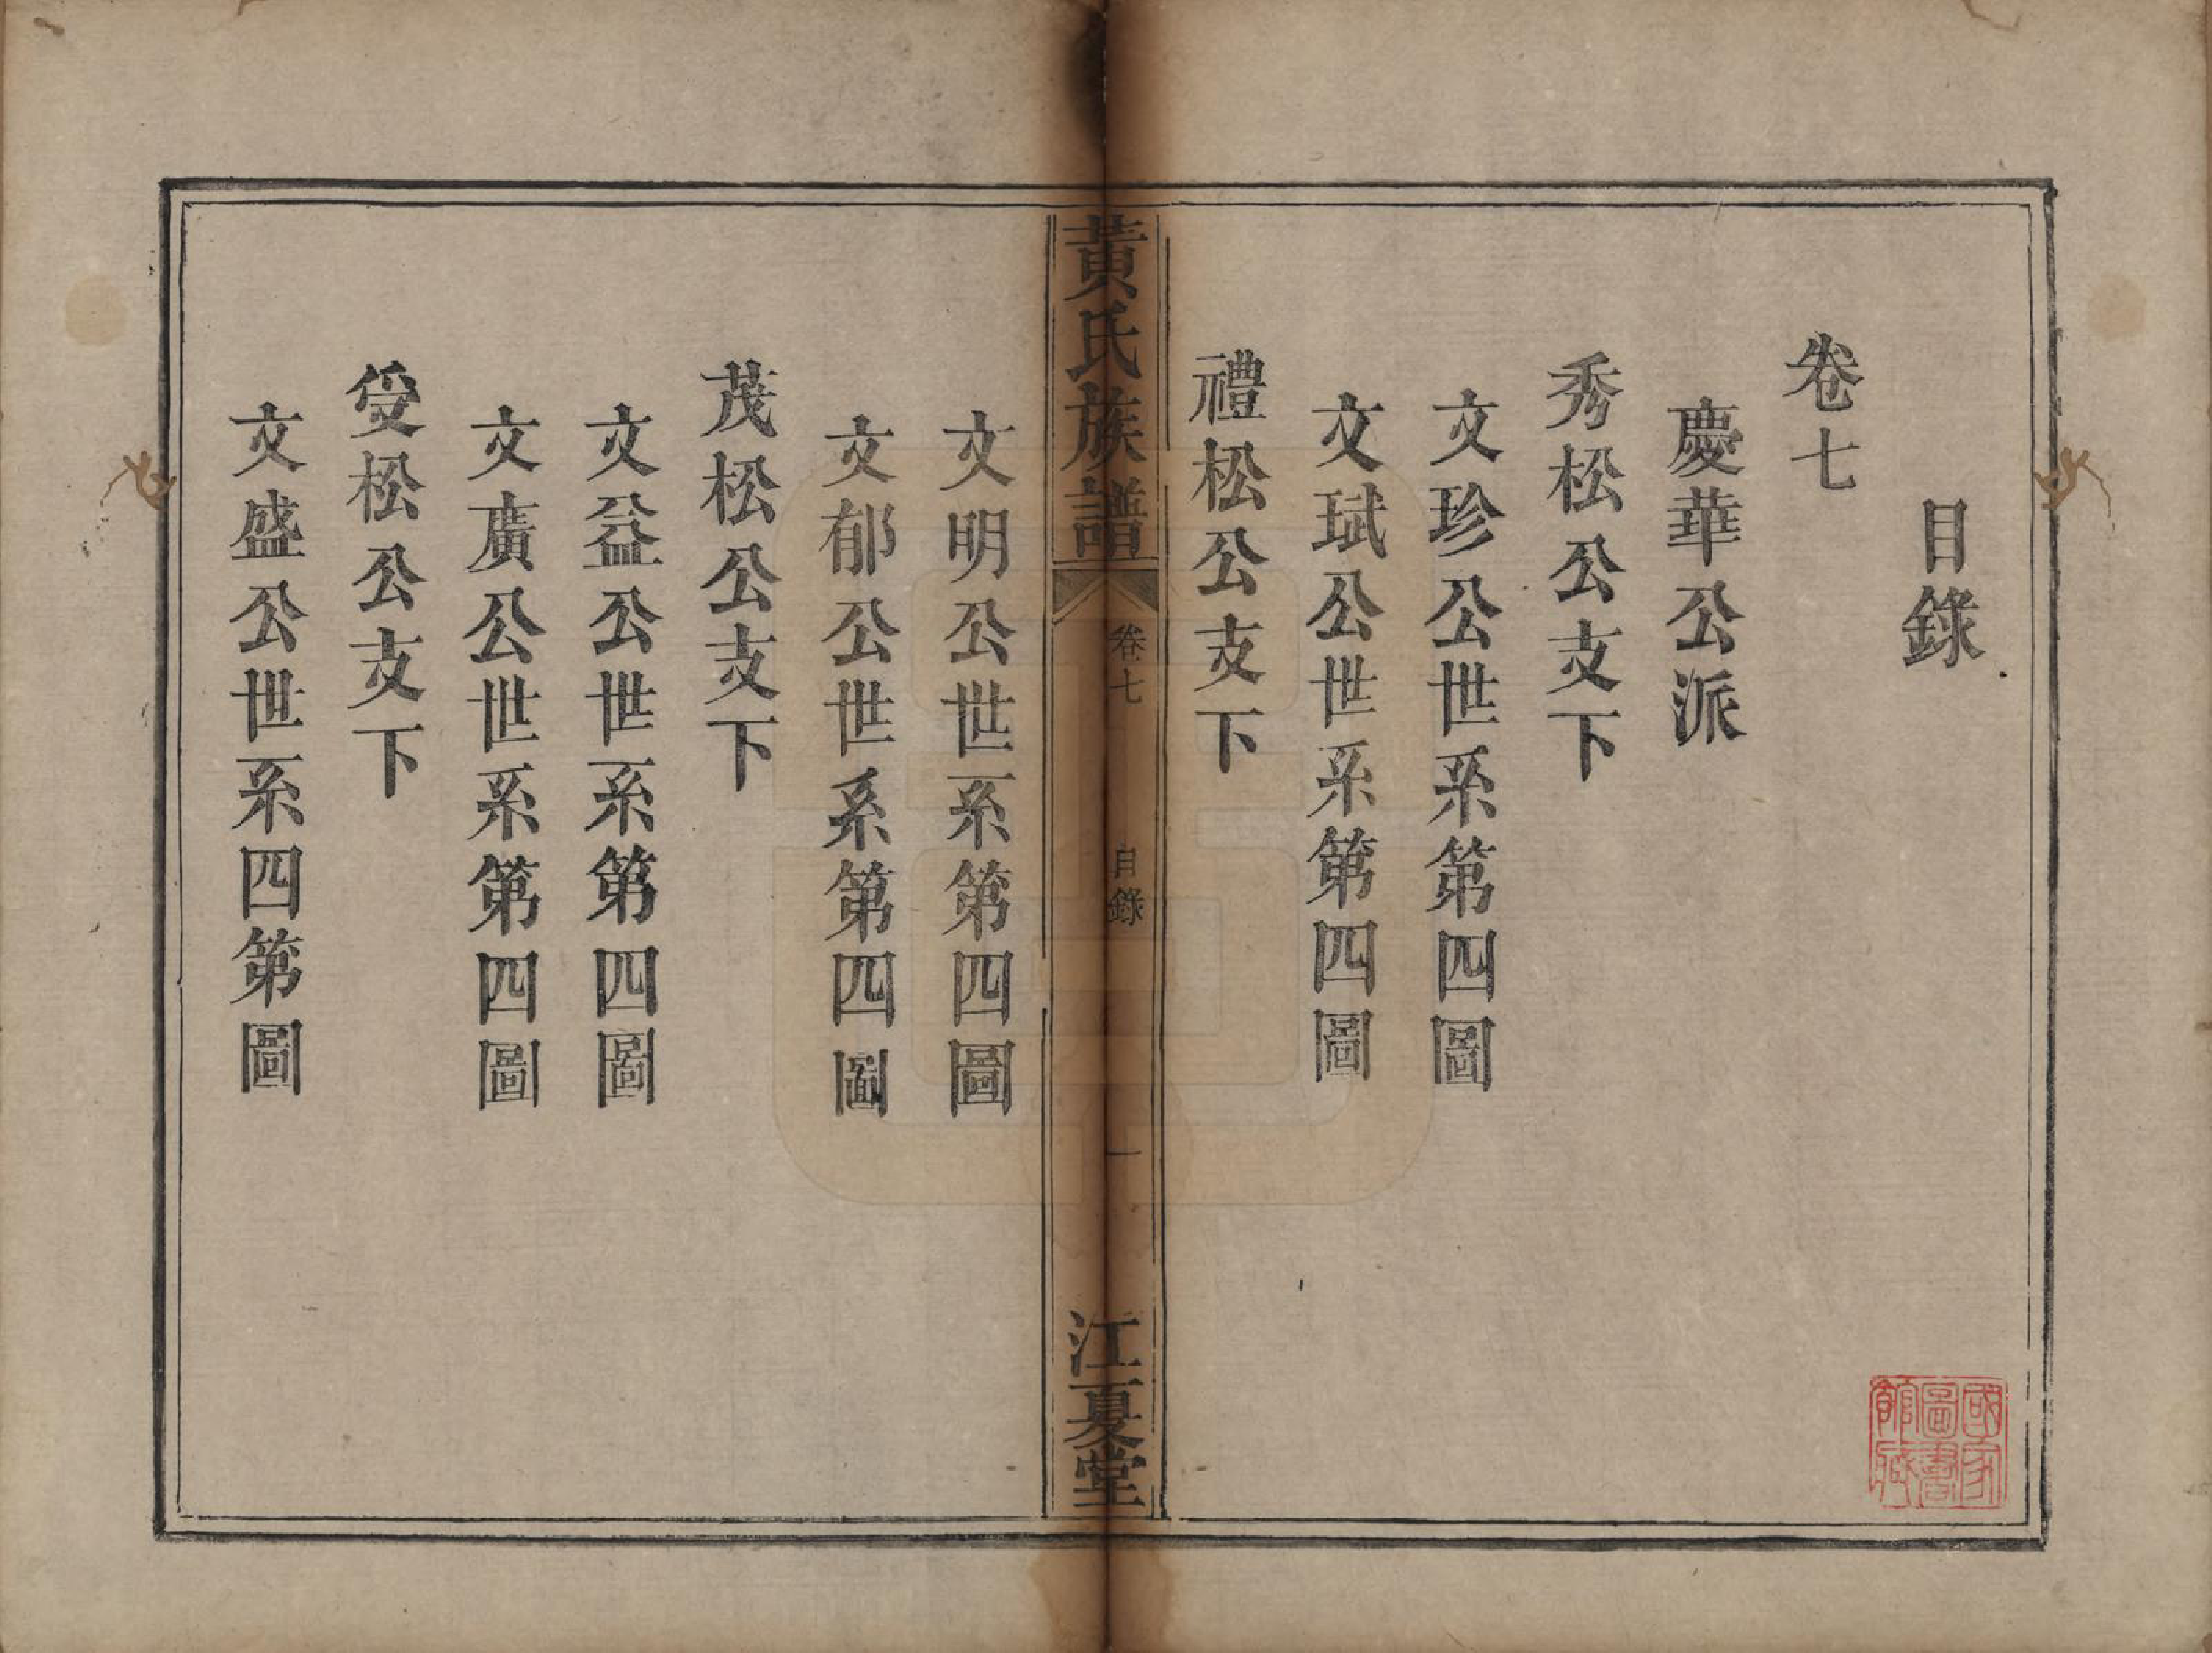 目錄
卷七
慶華公派
秀松公支下
文珍公世系第四圖
文珷公世系第四圖
禮松公支下
黃氏族譜
卷七
目錄
一
江夏堂
文明公世系第四圖
文郁公世系第四圖
茂松公支下
文益公世系第四圖
文廣公世系第四圖
受松公支下
文盛公世系四第圖
國家圖書館藏